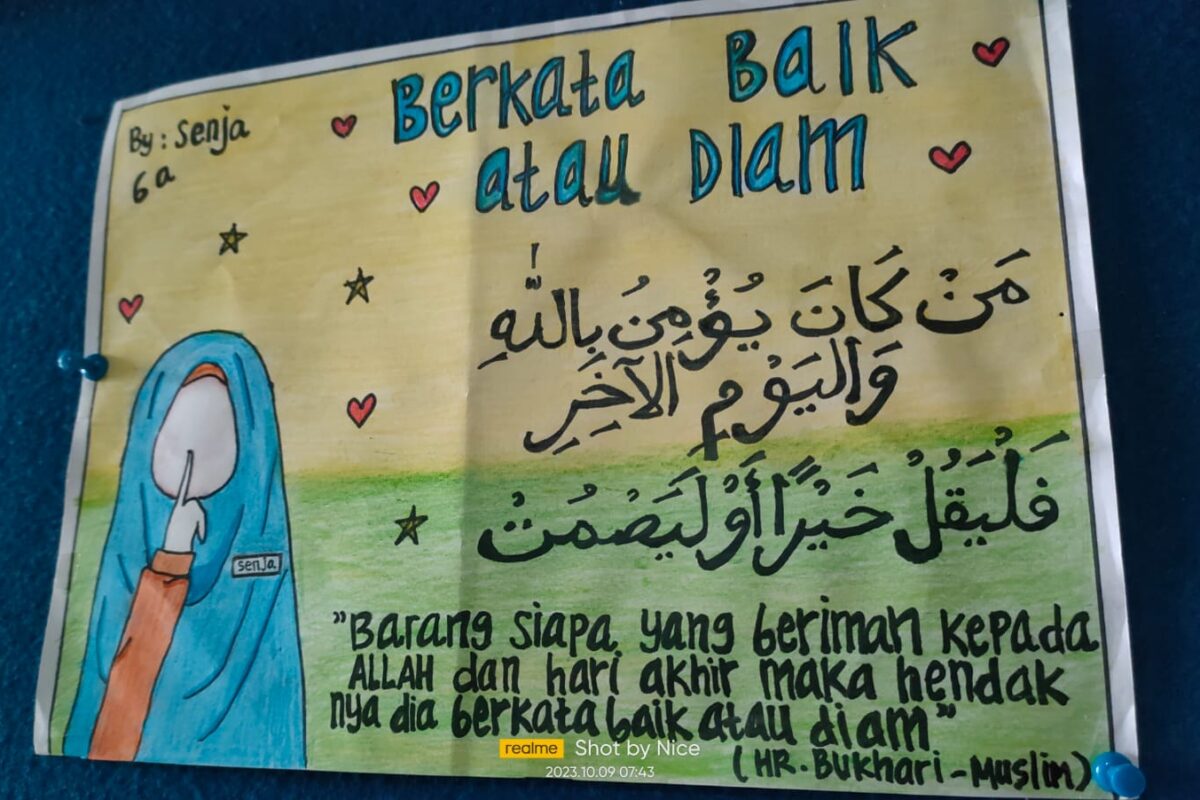 By : Senja
6a
Berkata Baik
atau Diam
مَنْ كَانَ يُؤْمِنُ بِاللّٰهِ
وَالْيَوْمِ الْآخِرِ
فَلْيَقُلْ خَيْرًا أَوْ لَيَصْمُتْ
senja
"Barang siapa yang beriman kepada
ALLAH dan hari akhir maka hendak
nya dia berkata baik atau diam"
(HR. Bukhari - Muslim)
realme Shot by Nice
2023.10.09 07:43